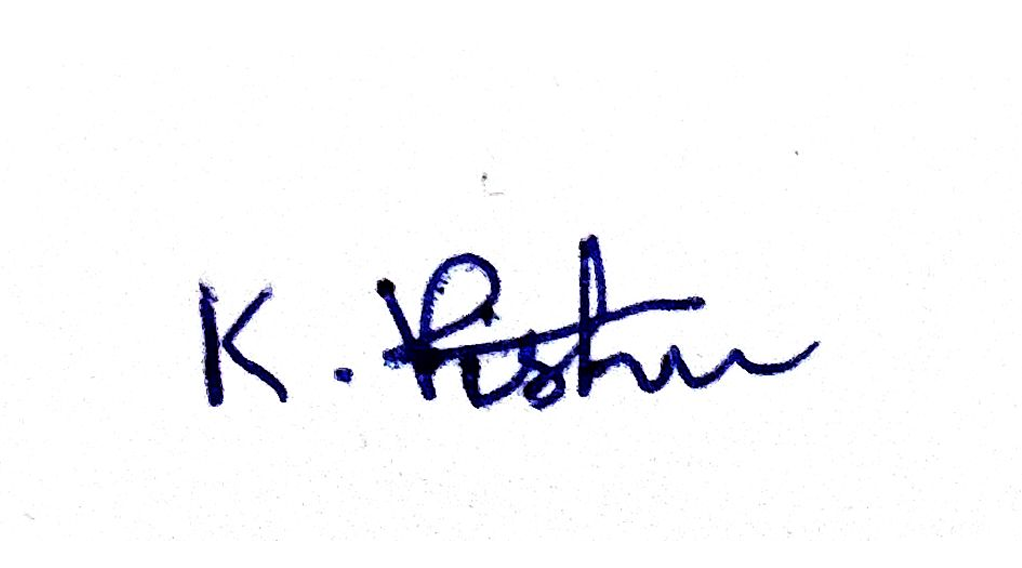 K. Vishnu